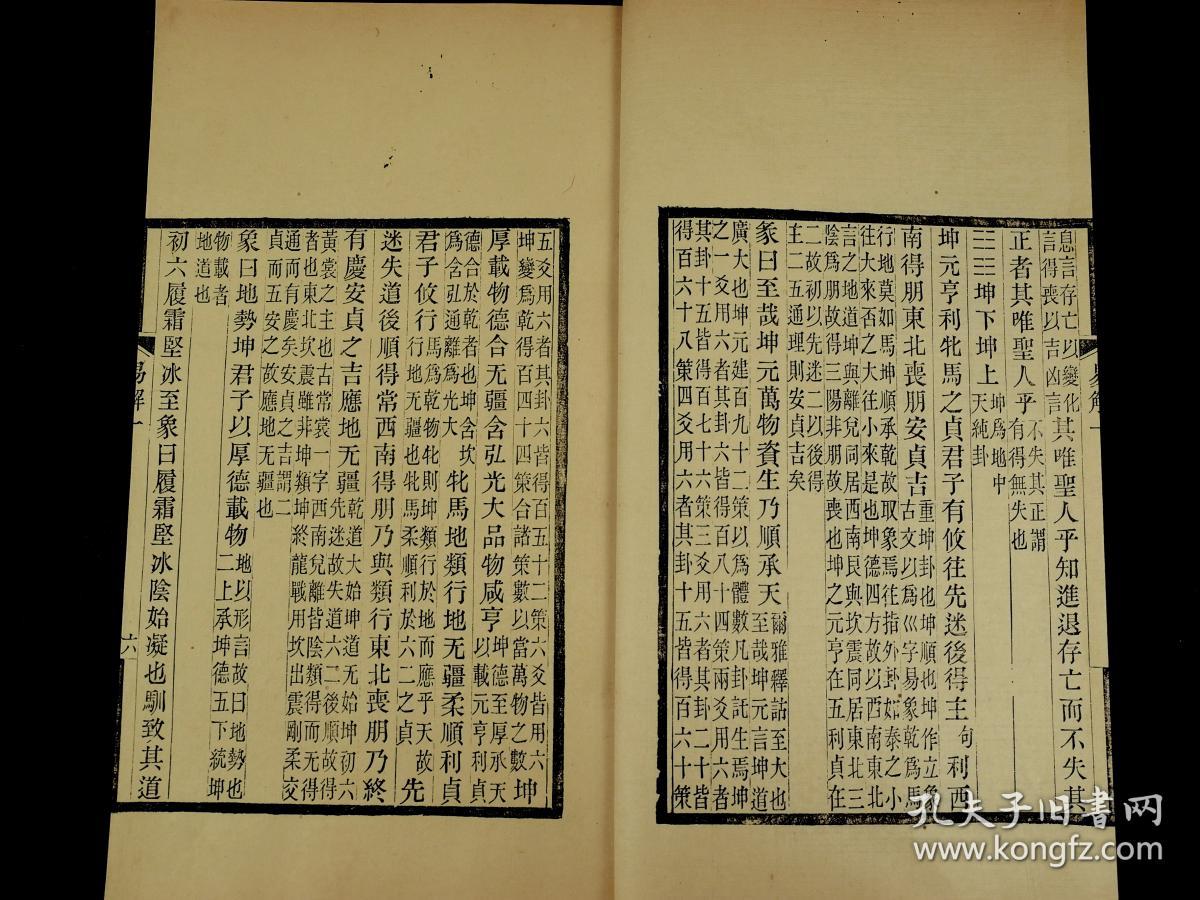 息言存亡以變化
言得喪以吉凶言其唯聖人乎知進退存亡而不失其
正者其唯聖人乎不失其正謂
有得無失也
☷☷坤下坤上坤為地中
天純卦
坤元亨利牝馬之貞君子有攸往先迷後得主句利西
南得朋東北喪朋安貞吉重坤卦也坤順也坤作立象
古文以為巛字易象乾為馬
行地莫如馬坤順承乾故取象焉往指外卦如泰之小
往大來否之大往小來是也坤德四方故以西南東北
言之地道坤與離兌同居西南艮與坎震同居東北三
陰為朋故得三陽非朋故喪也坤之元亨在五利貞在
二故初以先迷二以後得
主二五通理則安貞吉矣
彖曰至哉坤元萬物資生乃順承天爾雅釋詁至大也
至哉坤元言坤道
廣大也坤元建百九十二策以為體數凡卦託生焉坤
之一爻用六者其卦六皆得百八十四策兩爻用六者
其卦十五皆得百七十六策三爻用六者其卦二十皆
得百六十八策四爻用六者其卦十五皆得百六十策
五爻用六者其卦六皆得百五十二策六爻皆用六
坤變為乾得百四十四策合諸策數以當萬物之數坤
厚載物德合无疆含弘光大品物咸亨坤德至厚承天
以載元亨利貞
德合於乾者也坤含坎
為含弘通離為光大牝馬地類行地无疆柔順利貞
君子攸行馬為乾物牝則坤類行於地而應乎天故
行地无疆也牝馬柔順利於六二之貞先
迷失道後順得常西南得朋乃與類行東北喪朋乃終
有慶安貞之吉應地无疆乾道大始坤道无始坤初六
先迷故失道六二後順故得
黃裳之主也古常裳一字西南兌離皆陰類得而无得
者也東北坎震雖非坤類坤終龍戰用坎出震剛柔交
通而有慶矣安貞之吉謂二
貞而五安之故應地无疆也
象曰地勢坤君子以厚德載物地以形言故曰地勢也
二上承坤德五下統坤
物載者
地道也
初六履霜堅冰至象曰履霜堅冰陰始凝也馴致其道
易解一
六
易解一
孔夫子旧书网
www.kongfz.com